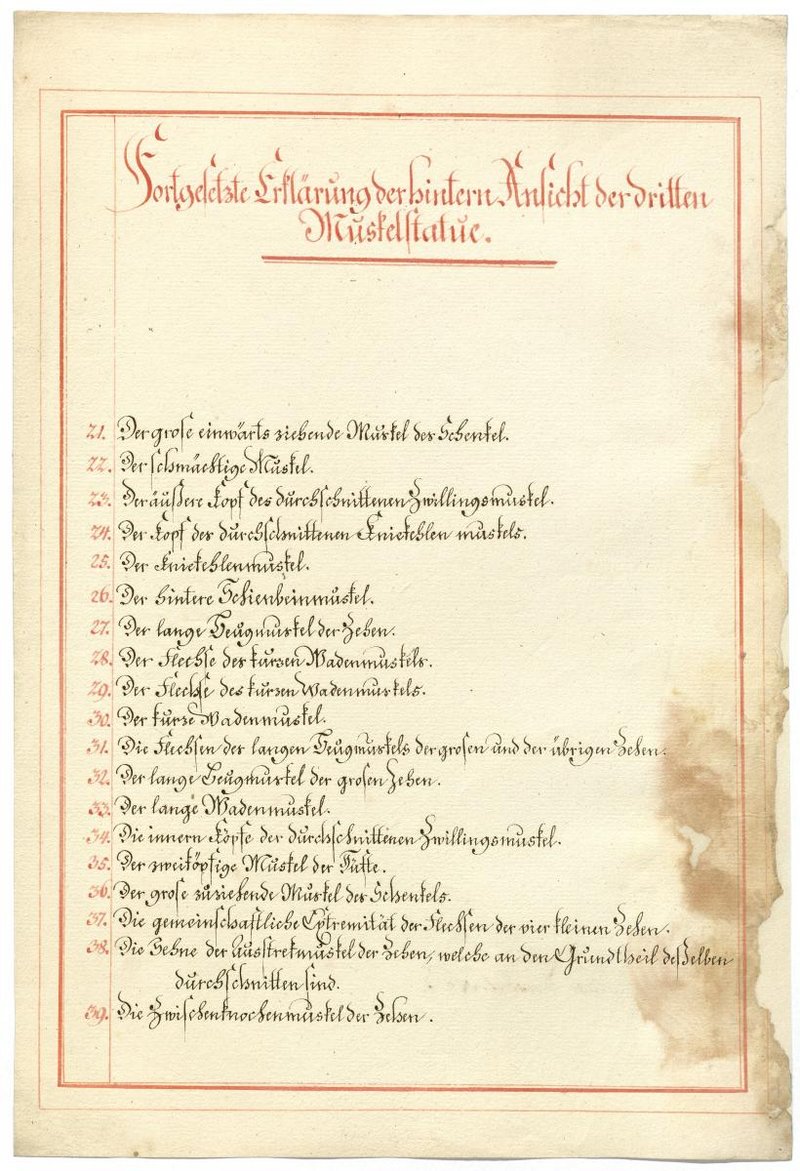 Fortgesetzte Erklärung der hintern Ansicht der dritten
Muskelstatue.
21. Der grose einwärts ziehende Muskel des Schenkel.
22. Der schmächtige Muskel.
23. Der äußere Kopf des durchschnittenen Zwillingsmuskel.
24. Der Kopf des durchschnittenen Kniekehlen muskels.
25. Der Kniekehlenmuskel.
26. Der hintere Schienbeinmuskel.
27. Der lange Beugmuskel der Zehen.
28. Der Flechse des kurzen Wadenmuskels.
29. Der Flechse des kurzen Wadenmuskels.
30. Der kurze Wadenmuskel.
31. Die Flechsen der langen Beugmuskels der grosen und der übrigen Zehen.
32. Der lange Beugmuskel der grosen Zehen.
33. Der lange Wadenmuskel.
34. Die innern Köpfe der durchschnittenen Zwillingsmuskel.
35. Der zweiköpfige Muskel der
36. Der grose zuziehende Muskel des Schenkels.
37. Die gemeinschaftliche Extremität der Flechsen der vier kleinen Zehen.
38. Die Sehne der Ausstrekmuskel der Zehen, welche an den Grundtheil desselben
durchschnitten sind.
39. Die Zwischenknochenmuskel der Zehen.